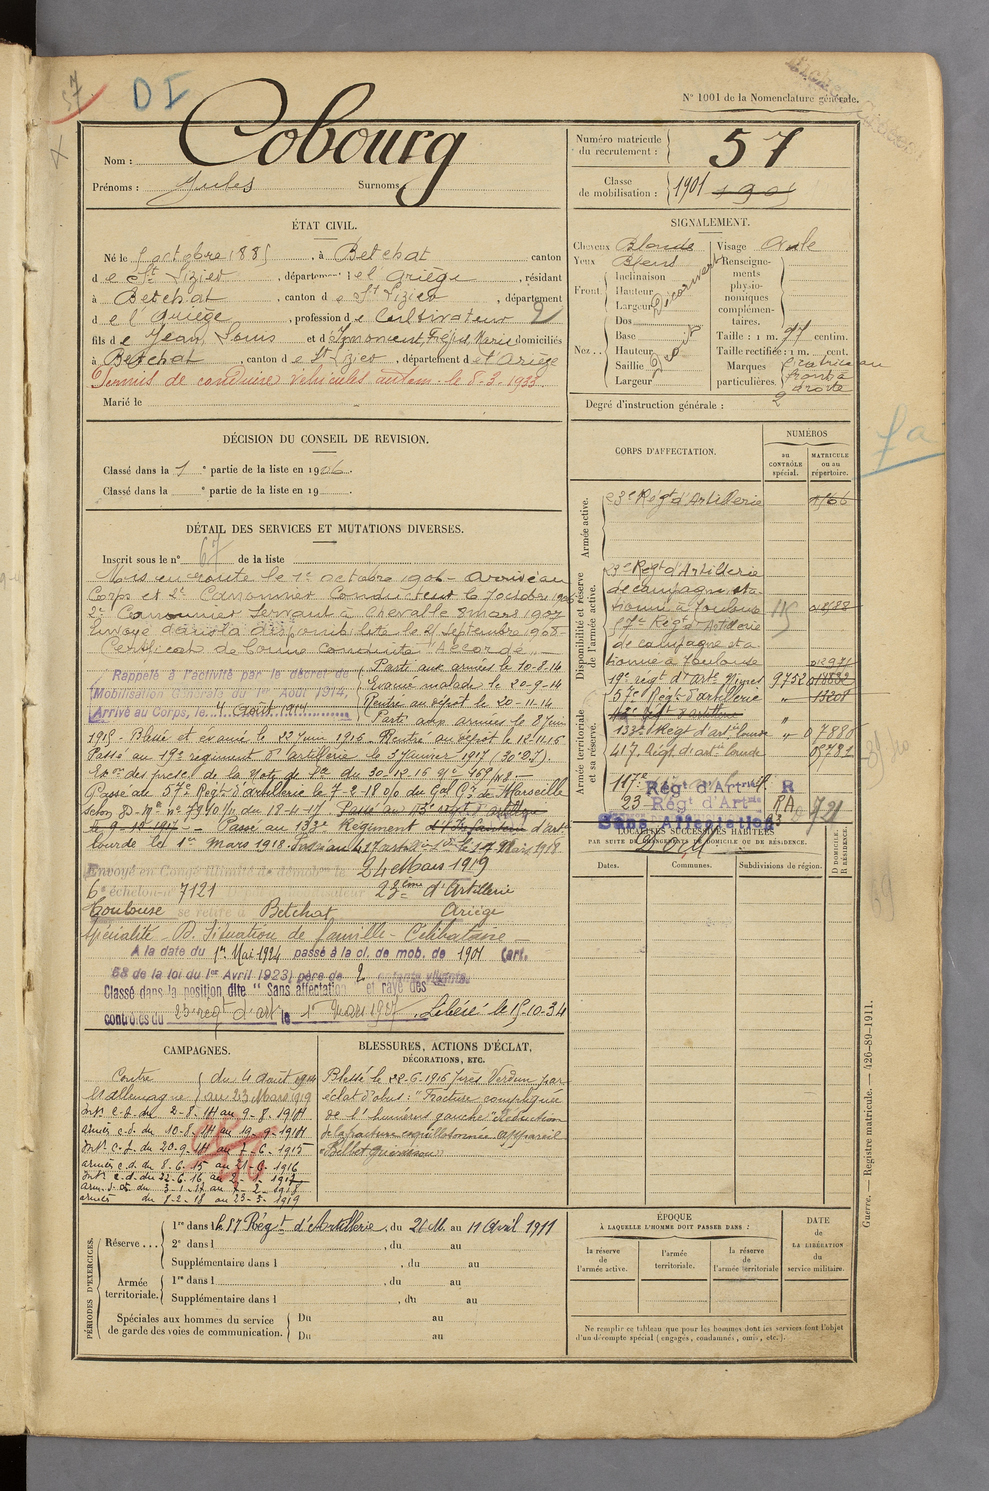 57
D I
N° 1001 de la Nomenclature générale.
Nom : Cobourg
Prénoms : Jules Surnoms
Numéro matricule du recrutement : 57
Classe de mobilisation : 1901
ÉTAT CIVIL.
Né le 5 octobre 1885, à Betchat canton
de St Lizier, département de l'Ariège, résidant
à Betchat, canton de St Lizier, département
de l'Ariège, profession de Cultivateur 2
fils de Jean Louis et d domiciliés
à Betchat, canton de St Lizier, département de l'Ariège
Permis de conduire véhicules autom. le 8-3-1933
Marié le
SIGNALEMENT.
Cheveux Blonds
Yeux Bleus
Front
Inclinaison
Hauteur
Largeur
Nez
Dos
Base
Hauteur
Saillie
Largeur
Visage Ovale
Renseignements physionomiques complémentaires.
Taille : 1 m. centim.
Taille rectifiée : 1 m. cent.
Marques particulières. Cicatrice au front à droite
Degré d'instruction générale : 2
DÉCISION DU CONSEIL DE REVISION.
Classé dans la 1e partie de la liste en 1906.
Classé dans la e partie de la liste en 19
DÉTAIL DES SERVICES ET MUTATIONS DIVERSES.
Inscrit sous le n° 67 de la liste
Mis en route le 1er octobre 1906 - arrivé au
Corps et 2e Canonnier Conducteur le 7 octobre 1906
2e Canonnier Servant à Cheval le 8 mars 1907
Envoyé dans la disponibilité le 21 septembre 1908 -
Certificat de Bonne Conduite "Accordé" -
Rappelé à l'activité par le décret de
Mobilisation Générale du 1er Août 1914,
Arrivé au Corps, le 4 août 1914
Parti aux armées le 10-8-14
Evacué malade le 20-9-14
Rentré au dépôt le 20-11-14
Parti aux armées le 8 juin
1915 - Blessé et évacué le 22 Juin 1916 - Rentré au dépôt le 12-11-16
Passé au 19e régiment d'artillerie le 3 Janvier 1917
Passé au 57e Régt d'artillerie le 7-2-18 o/o du Gal Ct de Marseille
Passé au 133e Régiment d'artie
lourde le 1er Mars 1918.
Envoyé en Congé illimité de démob. le 24 Mars 1919
6e échelon n° 7121 23ème d'Artillerie
Toulouse se retire à Betchat Ariège
Spécialité - Situation de famille - Célibataire -
A la date du 1er Mai 1924 passé à la cl. de mob. de 1901 (art.
58 de la loi du 1er Avril 1923) père de 2 enfants vivants.
Classé dans la position dite "Sans affectation" et rayé des
contrôles du 23e régt d'art le 1er Mars 1927. Libéré le 15-10-34
CORPS D'AFFECTATION.
NUMÉROS
au CONTRÔLE spécial.
MATRICULE ou au répertoire.
Armée active.
23e Régt d'Artillerie
Disponibilité et réserve de l'armée active.
23e Régt d'Artillerie
de campagne sta-
tionné à Toulouse
57e Régt d'Artillerie
de campagne sta-
tionné à Toulouse
19e régt d'artie Nîmes 9752
57e Régt d'artillerie
Armée territoriale et sa réserve.
133e Régt d'artie lourde
417 Régt d'artie lourde
117e Régt d'Artie R
23 Régt d'Artie RA
Sans Affectation
LOCALITÉS SUCCESSIVES HABITÉES
PAR SUITE DE CHANGEMENTS DE DOMICILE OU DE RÉSIDENCE.
Dates.
Communes.
Subdivisions de région.
D DOMICILE. R RÉSIDENCE.
CAMPAGNES.
Contre du 4 août 1914
l'Allemagne au 23 Mars 1919
Intr c.d. du 2-8-14 au 9-8-1914
armées c.d. du 10-8-14 au 19-9-1914
Intr c.d. du 20-9-14 au 7-6-1915
armées c.d. du 8-6-15 au 21-6-1916
armées du 8-2-18 au 23-3-1919
BLESSURES, ACTIONS D'ÉCLAT,
DÉCORATIONS, ETC.
Blessé le 22-6-1916 près Verdun par
éclat d'obus : "Fracture compliquée
de l'humérus gauche"
PÉRIODES D'EXERCICES.
Réserve...
1re dans le 57 Régt d'Artillerie, du 21 M. au 11 Avril 1911
2e dans l , du au
Supplémentaire dans l , du au
Armée territoriale.
1re dans l , du au
Supplémentaire dans l , du au
Spéciales aux hommes du service
de garde des voies de communication.
Du au
Du au
ÉPOQUE
À LAQUELLE L'HOMME DOIT PASSER DANS :
la réserve de l'armée active.
l'armée territoriale.
la réserve de l'armée territoriale
DATE de LA LIBÉRATION du service militaire.
Ne remplir ce tableau que pour les hommes dont les services font l'objet
d'un décompte spécial (engagés, condamnés, omis, etc.).
Guerre. — Registre matricule. — 426-89-1911.